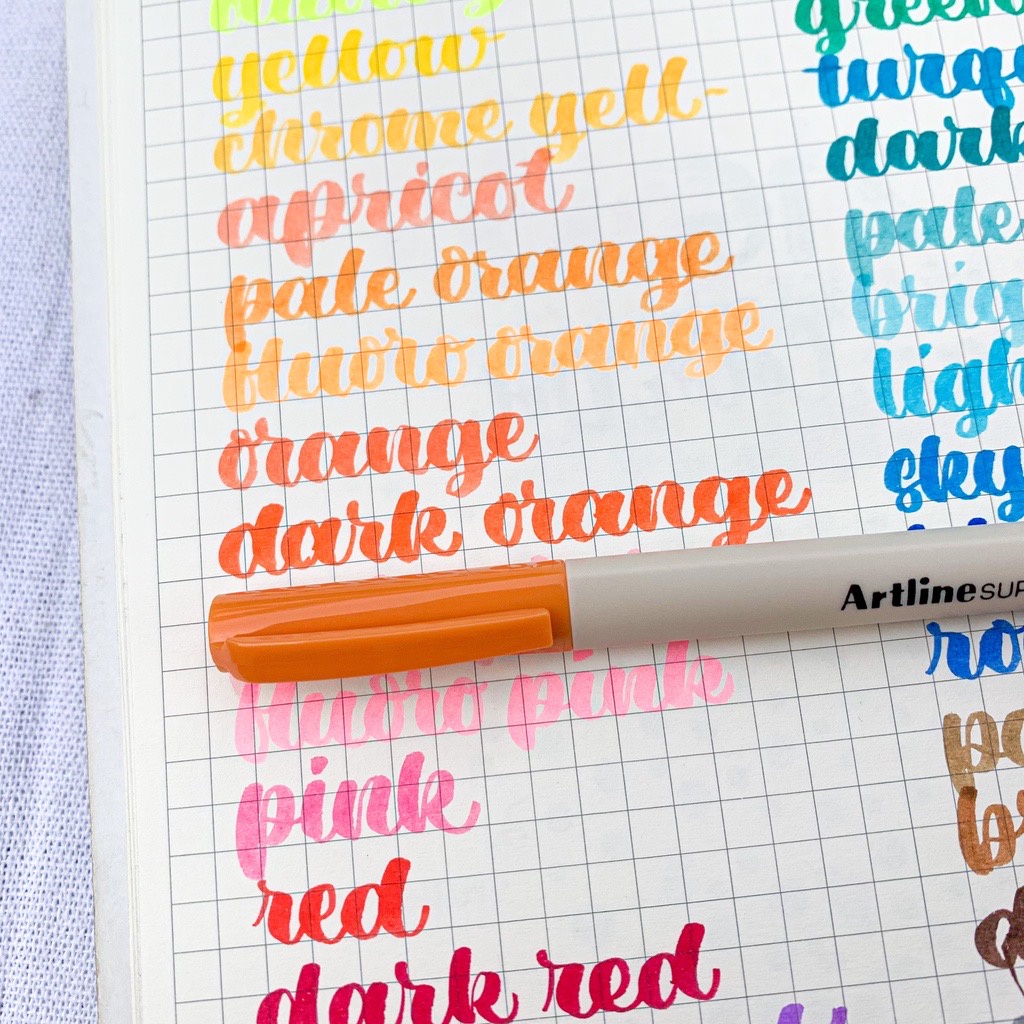 yellow
chrome yell-
apricot
pale orange
fluoro orange
orange
dark orange
fluoro pink
pink
red
dark red
green
turq
dark
pale
brig
ligh
sky
Artline SUP
ro
pa
br